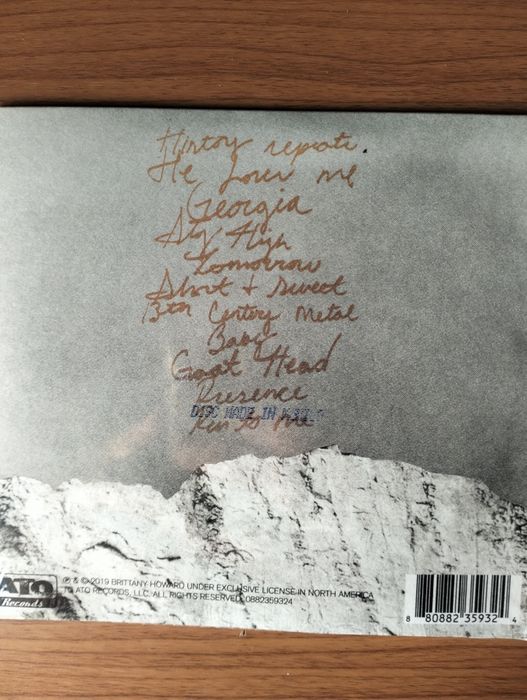 History repeats
He Loves me
Georgia
Stay High
Tomorrow
Short + Sweet
13th Century Metal
Baby
Goat Head
Presence
DISC MADE IN
Run to me
ATO
Records
℗ & © 2019 BRITTANY HOWARD UNDER EXCLUSIVE LICENSE IN NORTH AMERICA
TO ATO RECORDS, LLC. ALL RIGHTS RESERVED. 0882359324
8 80882 35932 4